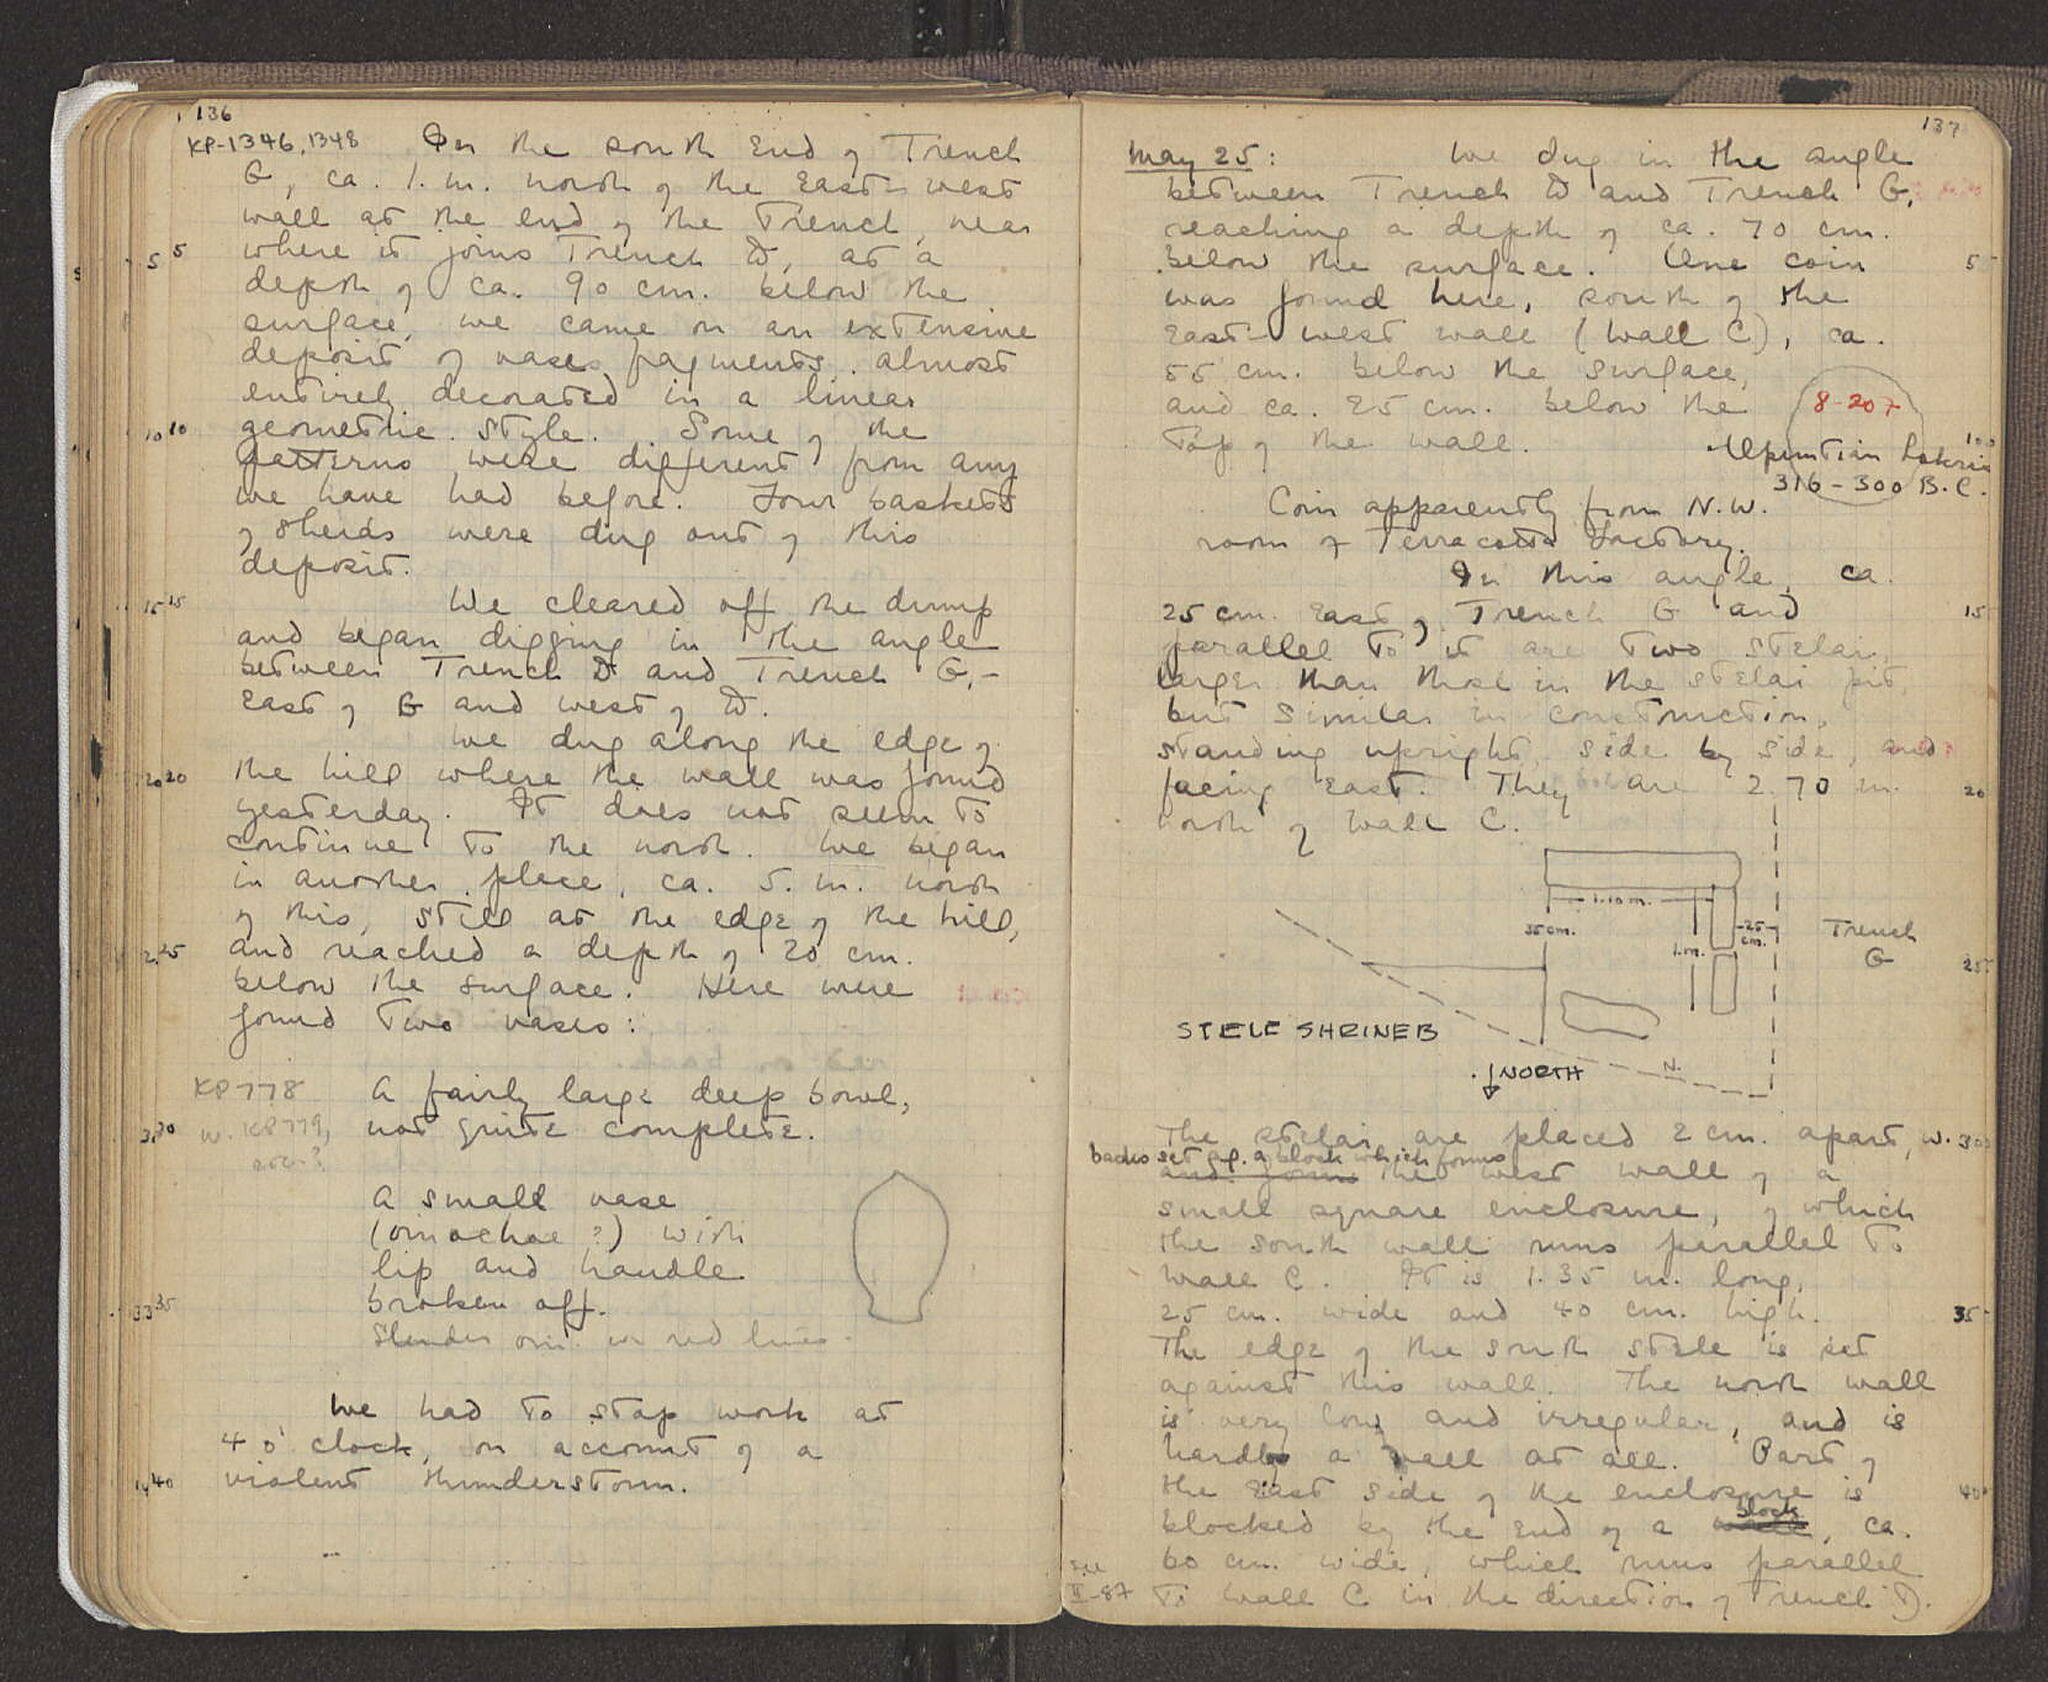 136
KP-1346, 1348 In the south end of Trench
G, ca. 1. m. north of the East-west
wall at the end of the Trench, near
where it joins Trench D, at a
5 5
depth of ca. 90 cm. below the
surface, we came on an extensive
deposit of vases fragments. almost
entirely decorated in a linear
geometric style. Some of the
10 10
patterns were different from any
we have had before. Four baskets
of sherds were dug out of this
deposit.
We cleared off the dump
15 15
and began digging in the angle
between Trench D and Trench G,-
East of G and west of D.
We dug along the edge of
the hill where the wall was found
20 20
yesterday. It does not seem to
continue to the north. We began
in another place, ca. 5. m. north
of this, still at the edge of the hill,
and reached a depth of 20 cm.
25
below the surface. Here were
found two vases:
KP 778 A fairly large deep bowl,
w. KP 779,
not quite complete.
30
A small vase
(oinochoe ?) with
lip and handle
broken off.
33 35
Slender oin. w red lines.
We had to stop work at
4 o'clock, on account of a
violent thunderstorm.
40
137
May 25: We dug in the angle
between Trench D and Trench G,
reaching a depth of ca. 70 cm.
below the surface. One coin
5
was found here, south of the
East-west wall (Wall C), ca.
55 cm. below the surface,
and ca. 25 cm. below the
8-207
top of the wall.
10
Opuntian Lokris
316-300 B.C.
Coin apparently from N.W.
room of Terracotta Factory.
In this angle, ca.
25 cm. East of Trench G and
15
parallel to it are two stelai,
larger than those in the stelai pit,
but similar in construction,
standing upright, side by side, and
facing East. They are 2.70 m.
20
north of Wall C.
1.10 m.
35 cm.
25 cm.
1. m.
Trench
G
25
STELE SHRINE B
NORTH
N.
The stelai are placed 2 cm. apart, w.
30
backs set ag. a block which forms
and form the west wall of a
small square enclosure, of which
the south wall runs parallel to
Wall C. It is 1.35 m. long,
25 cm. wide and 40 cm. high.
35
The edge of the south stele is set
against this wall. The north wall
is very low and irregular, and is
hardly a wall at all. Part of
the East side of the enclosure is
40
block
blocked by the end of a wall, ca.
60 cm. wide, which runs parallel
see
II-87
to Wall C in the direction of Trench D.